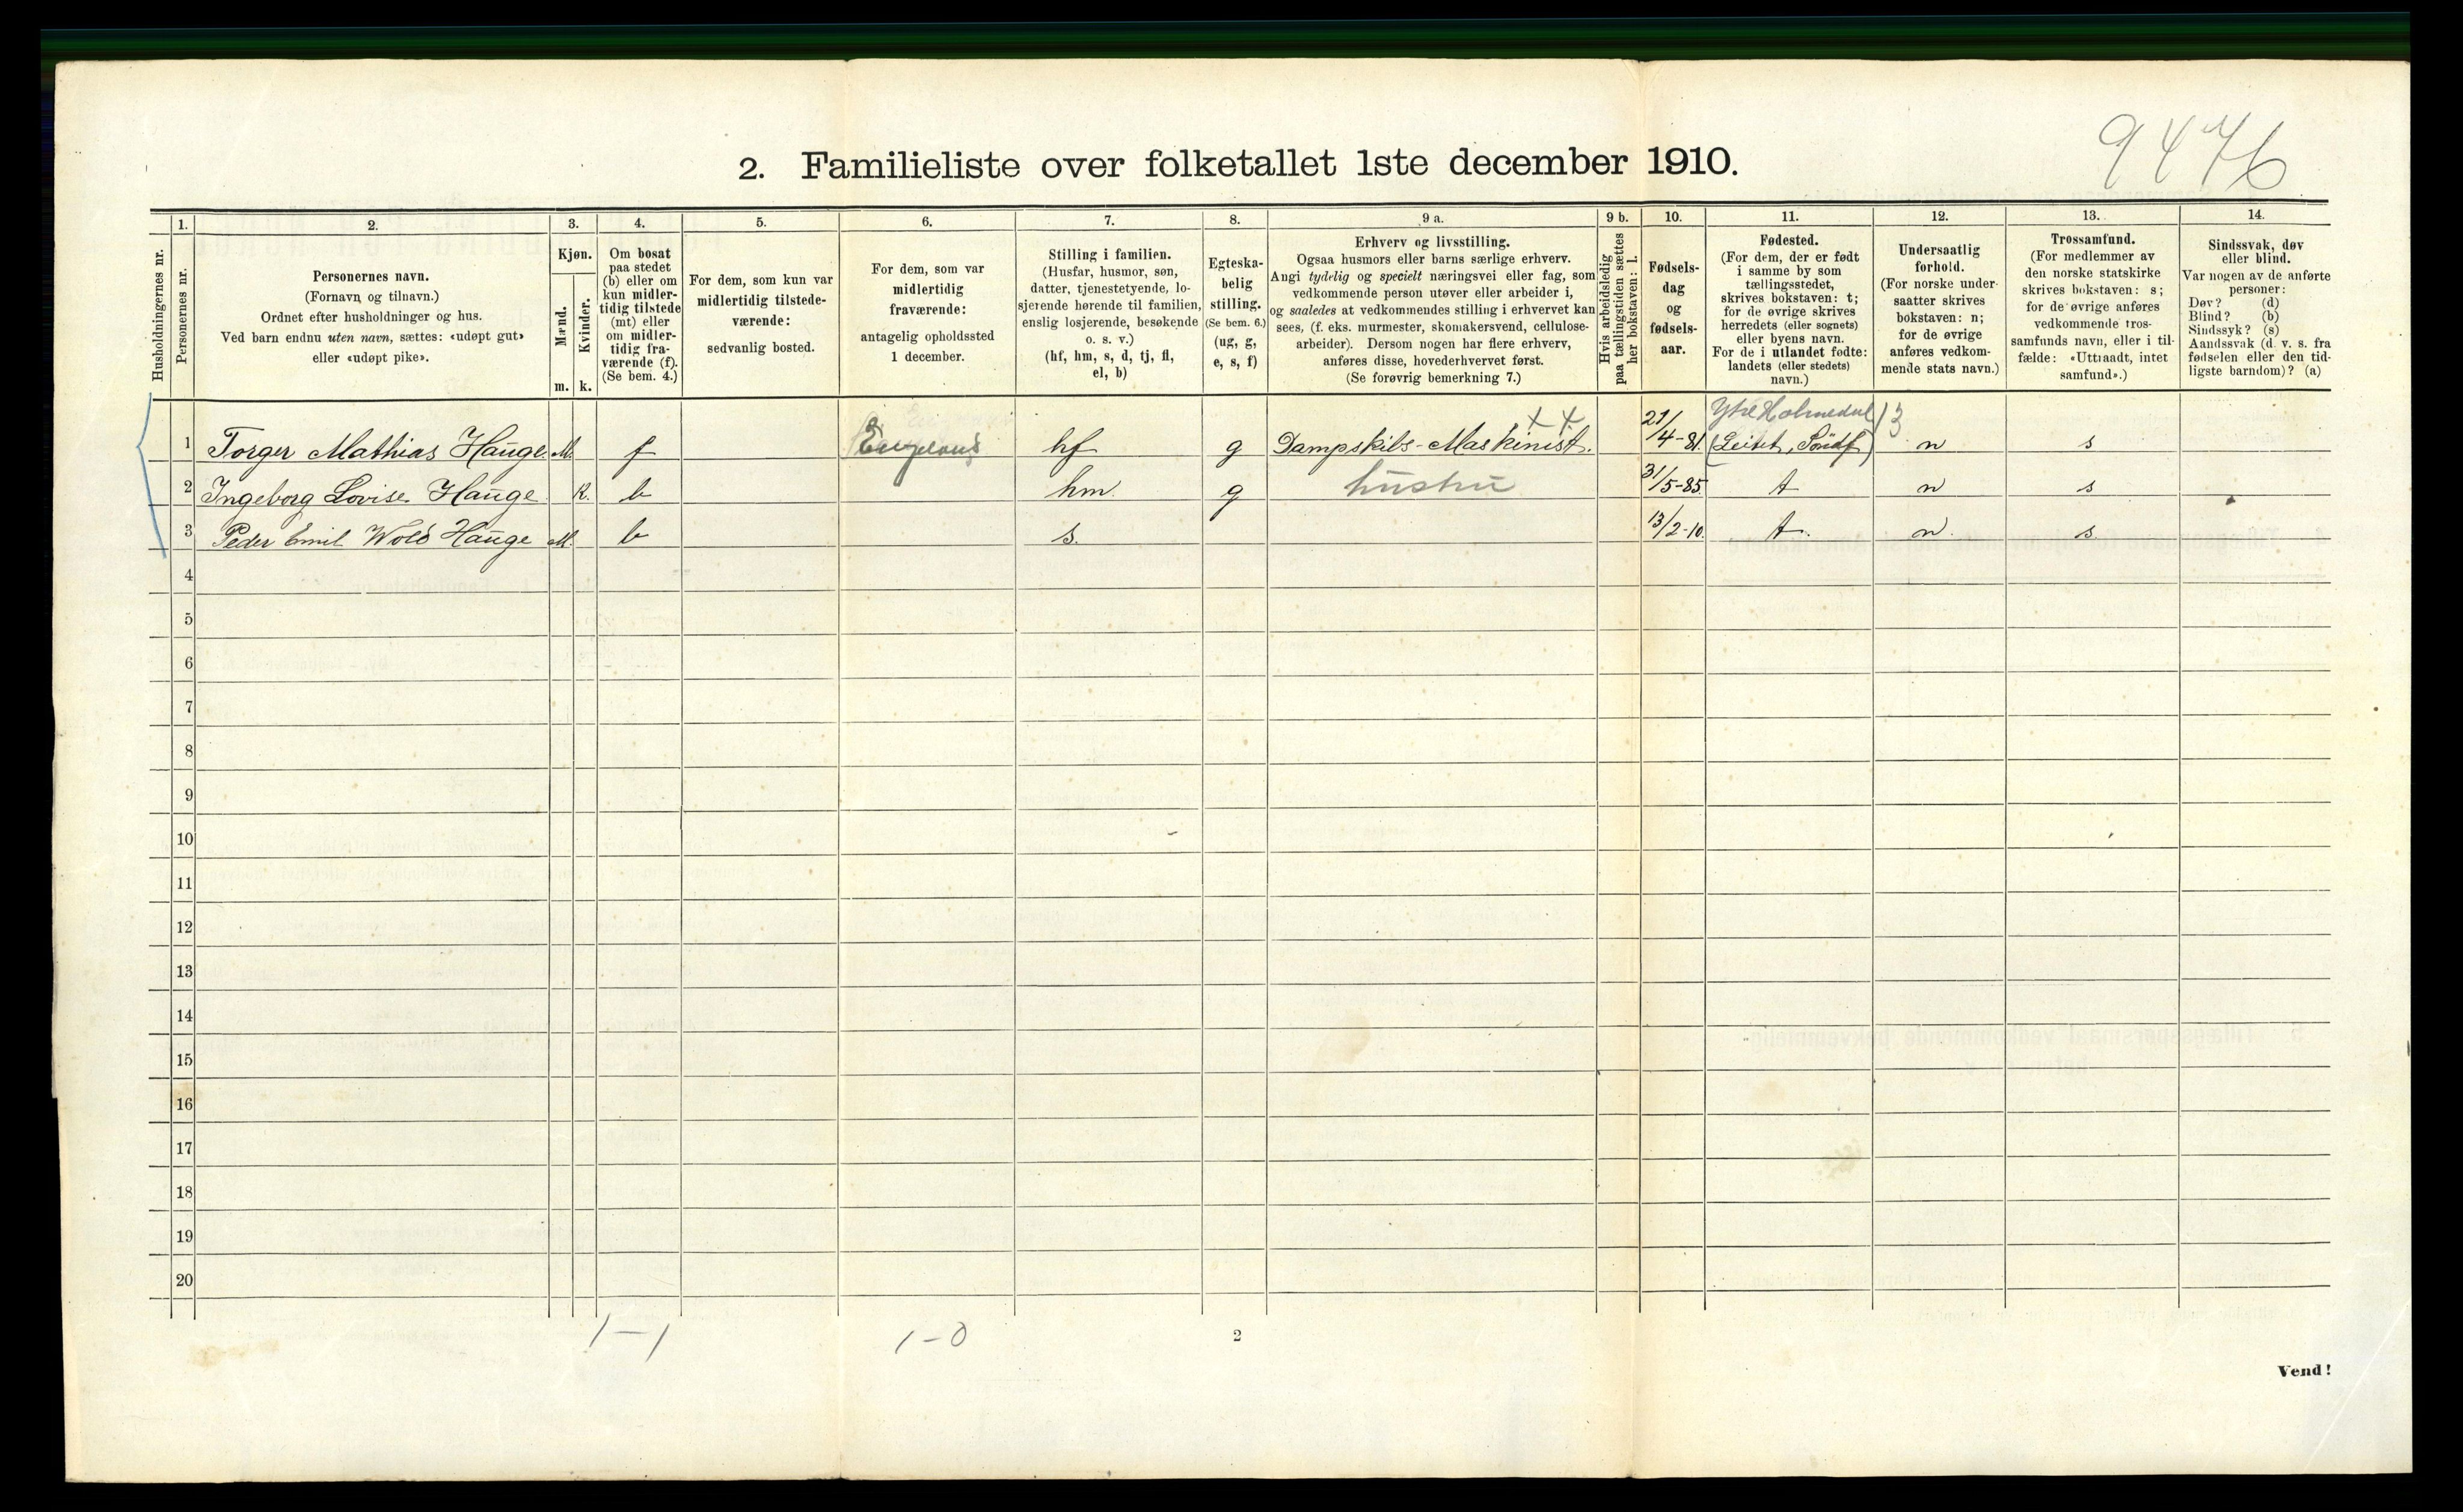 9476
2. Familieliste over folketallet 1ste december 1910.
Husholdningernes nr.
1.
Personernes nr.
2.
Personernes navn.
(Fornavn og tilnavn.)
Ordnet efter husholdninger og hus.
Ved barn endnu uten navn, sættes: «udøpt gut»
eller «udøpt pike».
3.
Kjøn.
Mænd.
Kvinder.
m. k.
4.
Om bosat
paa stedet
(b) eller om
kun midler-
tidig tilstede
(mt) eller
om midler-
tidig fra-
værende (f).
(Se bem. 4.)
5.
For dem, som kun var
midlertidig tilstede-
værende:
sedvanlig bosted.
6.
For dem, som var
midlertidig
fraværende:
antagelig opholdssted
1 december.
7.
Stilling i familien.
(Husfar, husmor, søn,
datter, tjenestetyende, lo-
sjerende hørende til familien,
enslig losjerende, besøkende
o. s. v.)
(hf, hm, s, d, tj, fl,
el, b)
8.
Egteska-
belig
stilling.
(Se bem. 6.)
(ug, g,
e, s, f)
9 a.
Erhverv og livsstilling.
Ogsaa husmors eller barns særlige erhverv.
Angi tydelig og specielt næringsvei eller fag, som
vedkommende person utøver eller arbeider i,
og saaledes at vedkommendes stilling i erhvervet kan
sees, (f. eks. murmester, skomakersvend, cellulose-
arbeider). Dersom nogen har flere erhverv,
anføres disse, hovederhvervet først.
(Se forøvrig bemerkning 7.)
9 b.
Hvis arbeidsledig
paa tællingstiden sættes
her bokstaven: l.
10.
Fødsels-
dag
og
fødsels-
aar.
11.
Fødested.
(For dem, der er født
i samme by som
tællingsstedet,
skrives bokstaven: t;
for de øvrige skrives
herredets (eller sognets)
eller byens navn.
For de i utlandet fødte:
landets (eller stedets)
navn.)
12.
Undersaatlig
forhold.
(For norske under-
saatter skrives
bokstaven: n;
for de øvrige
anføres vedkom-
mende stats navn.)
13.
Trossamfund.
(For medlemmer av
den norske statskirke
skrives bokstaven: s;
for de øvrige anføres
vedkommende tros-
samfunds navn, eller i til-
fælde: «Uttraadt, intet
samfund».)
14.
Sindssvak, døv
eller blind.
Var nogen av de anførte
personer:
Døv? (d)
Blind? (b)
Sindssyk? (s)
Aandssvak (d. v. s. fra
fødselen eller den tid-
ligste barndom)? (a)
1 Torger Mathias Hauge. M. f England hf g Dampskibs-Maskinist. 21/4-81. Ytre Holmedal (Leitet, Söndf) n s
2 Ingeborg Lovise Hauge K. b hm. g hustru 31/5-85. t n s
3 Peder Emil Wold Hauge M. b s. 13/2-10. t. n. s
4
5
6
7
8
9
10
11
12
13
14
15
16
17
18
19
20
1-1 1-0
2
Vend!